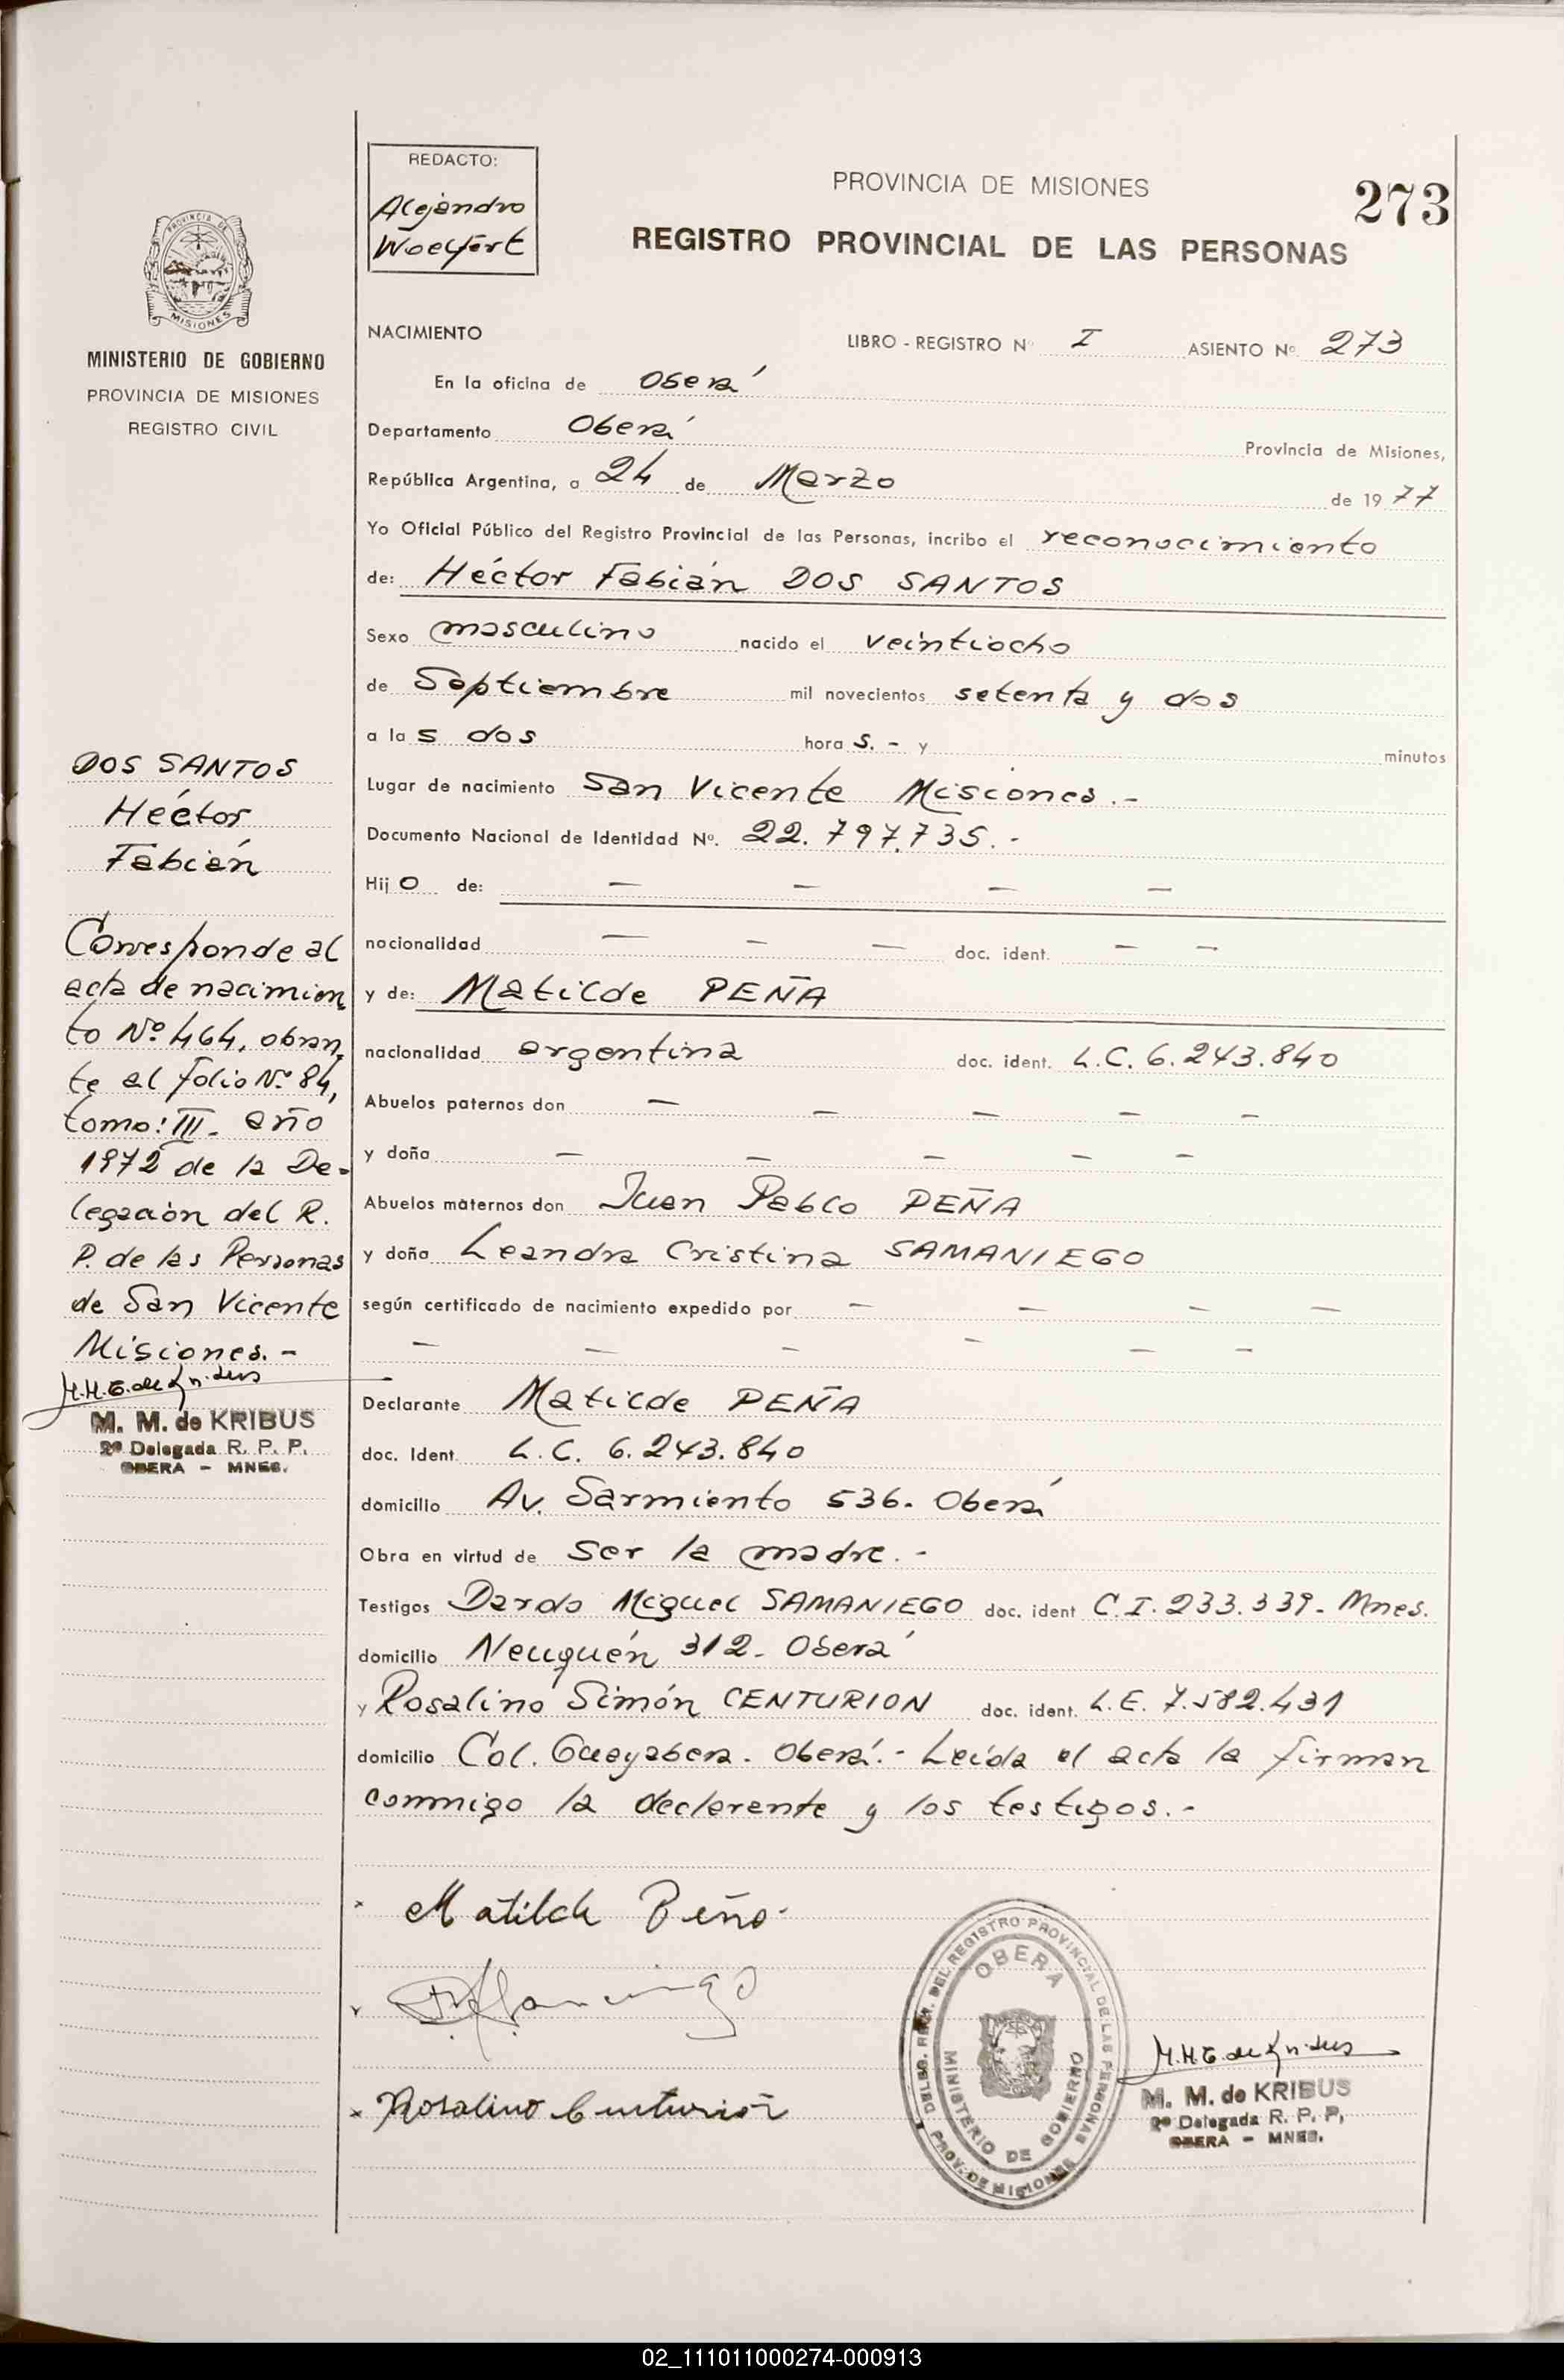 REDACTO:
Alejandro
Woelfert
PROVINCIA DE MISIONES
273
REGISTRO PROVINCIAL DE LAS PERSONAS
PROVINCIA DE
MISIONES
MINISTERIO DE GOBIERNO
PROVINCIA DE MISIONES
REGISTRO CIVIL
NACIMIENTO LIBRO - REGISTRO Nº I ASIENTO Nº 273
En la oficina de Oberá
Departamento Oberá Provincia de Misiones,
República Argentina, a 24 de Marzo de 1977
Yo Oficial Público del Registro Provincial de las Personas, incribo el reconocimiento
de: Héctor Fabián DOS SANTOS
Sexo masculino nacido el veintiocho
de Septiembre mil novecientos setenta y dos
a las dos horas.- y minutos
Lugar de nacimiento San Vicente Misiones.-
Documento Nacional de Identidad Nº. 22.797.735.-
Hijo de: — — — —
nacionalidad — — — doc. ident. — —
y de: Matilde PEÑA
nacionalidad argentina doc. ident. L.C. 6.243.840
Abuelos paternos don — — — — —
y doña — — — — —
Abuelos maternos don Juan Pablo PEÑA
y doña Leandra Cristina SAMANIEGO
según certificado de nacimiento expedido por — — — —
— — — — — —
Declarante Matilde PEÑA
doc. Ident. L.C. 6.243.840
domicilio Av. Sarmiento 536. Oberá
Obra en virtud de ser la madre.-
Testigos Dardo Miguel SAMANIEGO doc. ident C.I. 233.339- Mnes.
domicilio Neuquén 312- Oberá
y Rosalino Simón CENTURION doc. ident. L.E. 7.582.431
domicilio Col. Guayabera. Oberá.- Leída el acta la firman
conmigo la declarente y los testigos.-
DOS SANTOS
Héctor
Fabián
Corresponde al
acta de nacimien
to Nº 464, obran
te al folio Nº 84,
tomo: III- año
1972 de la De-
legación del R.
P. de las Personas
de San Vicente
Misiones.-
M. M. de KRIBUS
2ª Delegada R. P. P.
OBERA - MNES.
x Matilde Peña
x
x Rosalino Centurión
DEL REGISTRO PROVINCIAL DE LAS PERSONAS
PROV. DE MISIONES
OBERA
MINISTERIO DE GOBIERNO
M. M. de KRIBUS
2ª Delegada R. P. P.
OBERA - MNES.
02_111011000274-000913